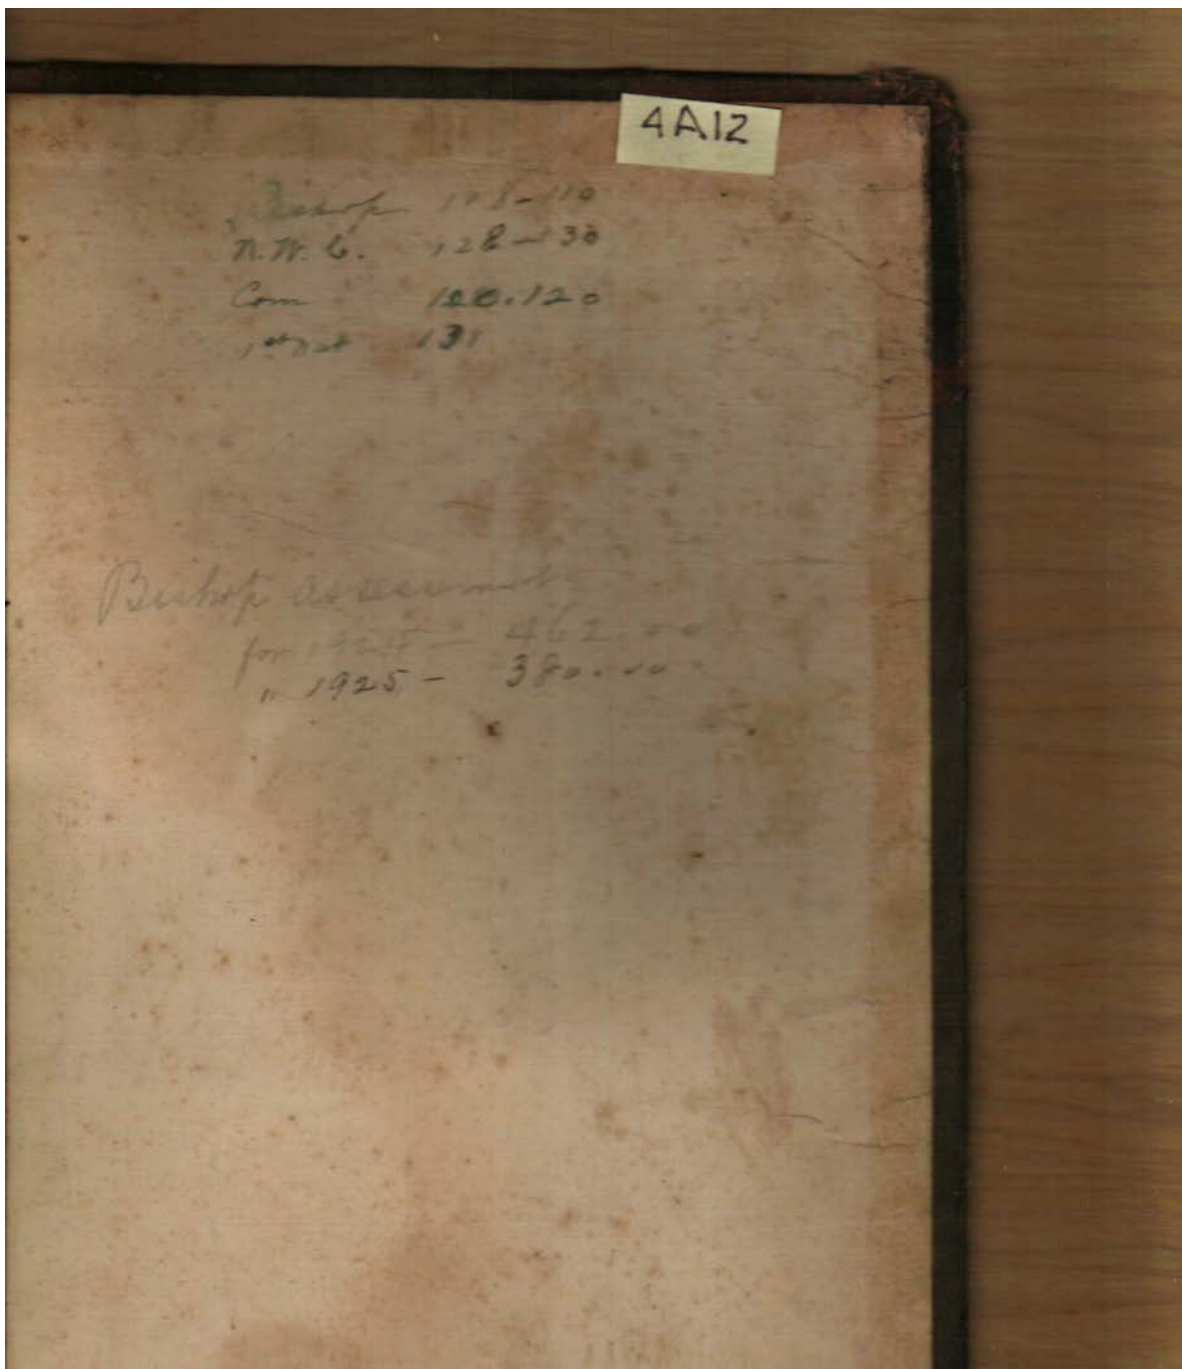 4A12
Bishop 108-110
N.W.C. 128-130
Com 120
131
Bishop assessment
for 462.00
" 1925 - 380.00